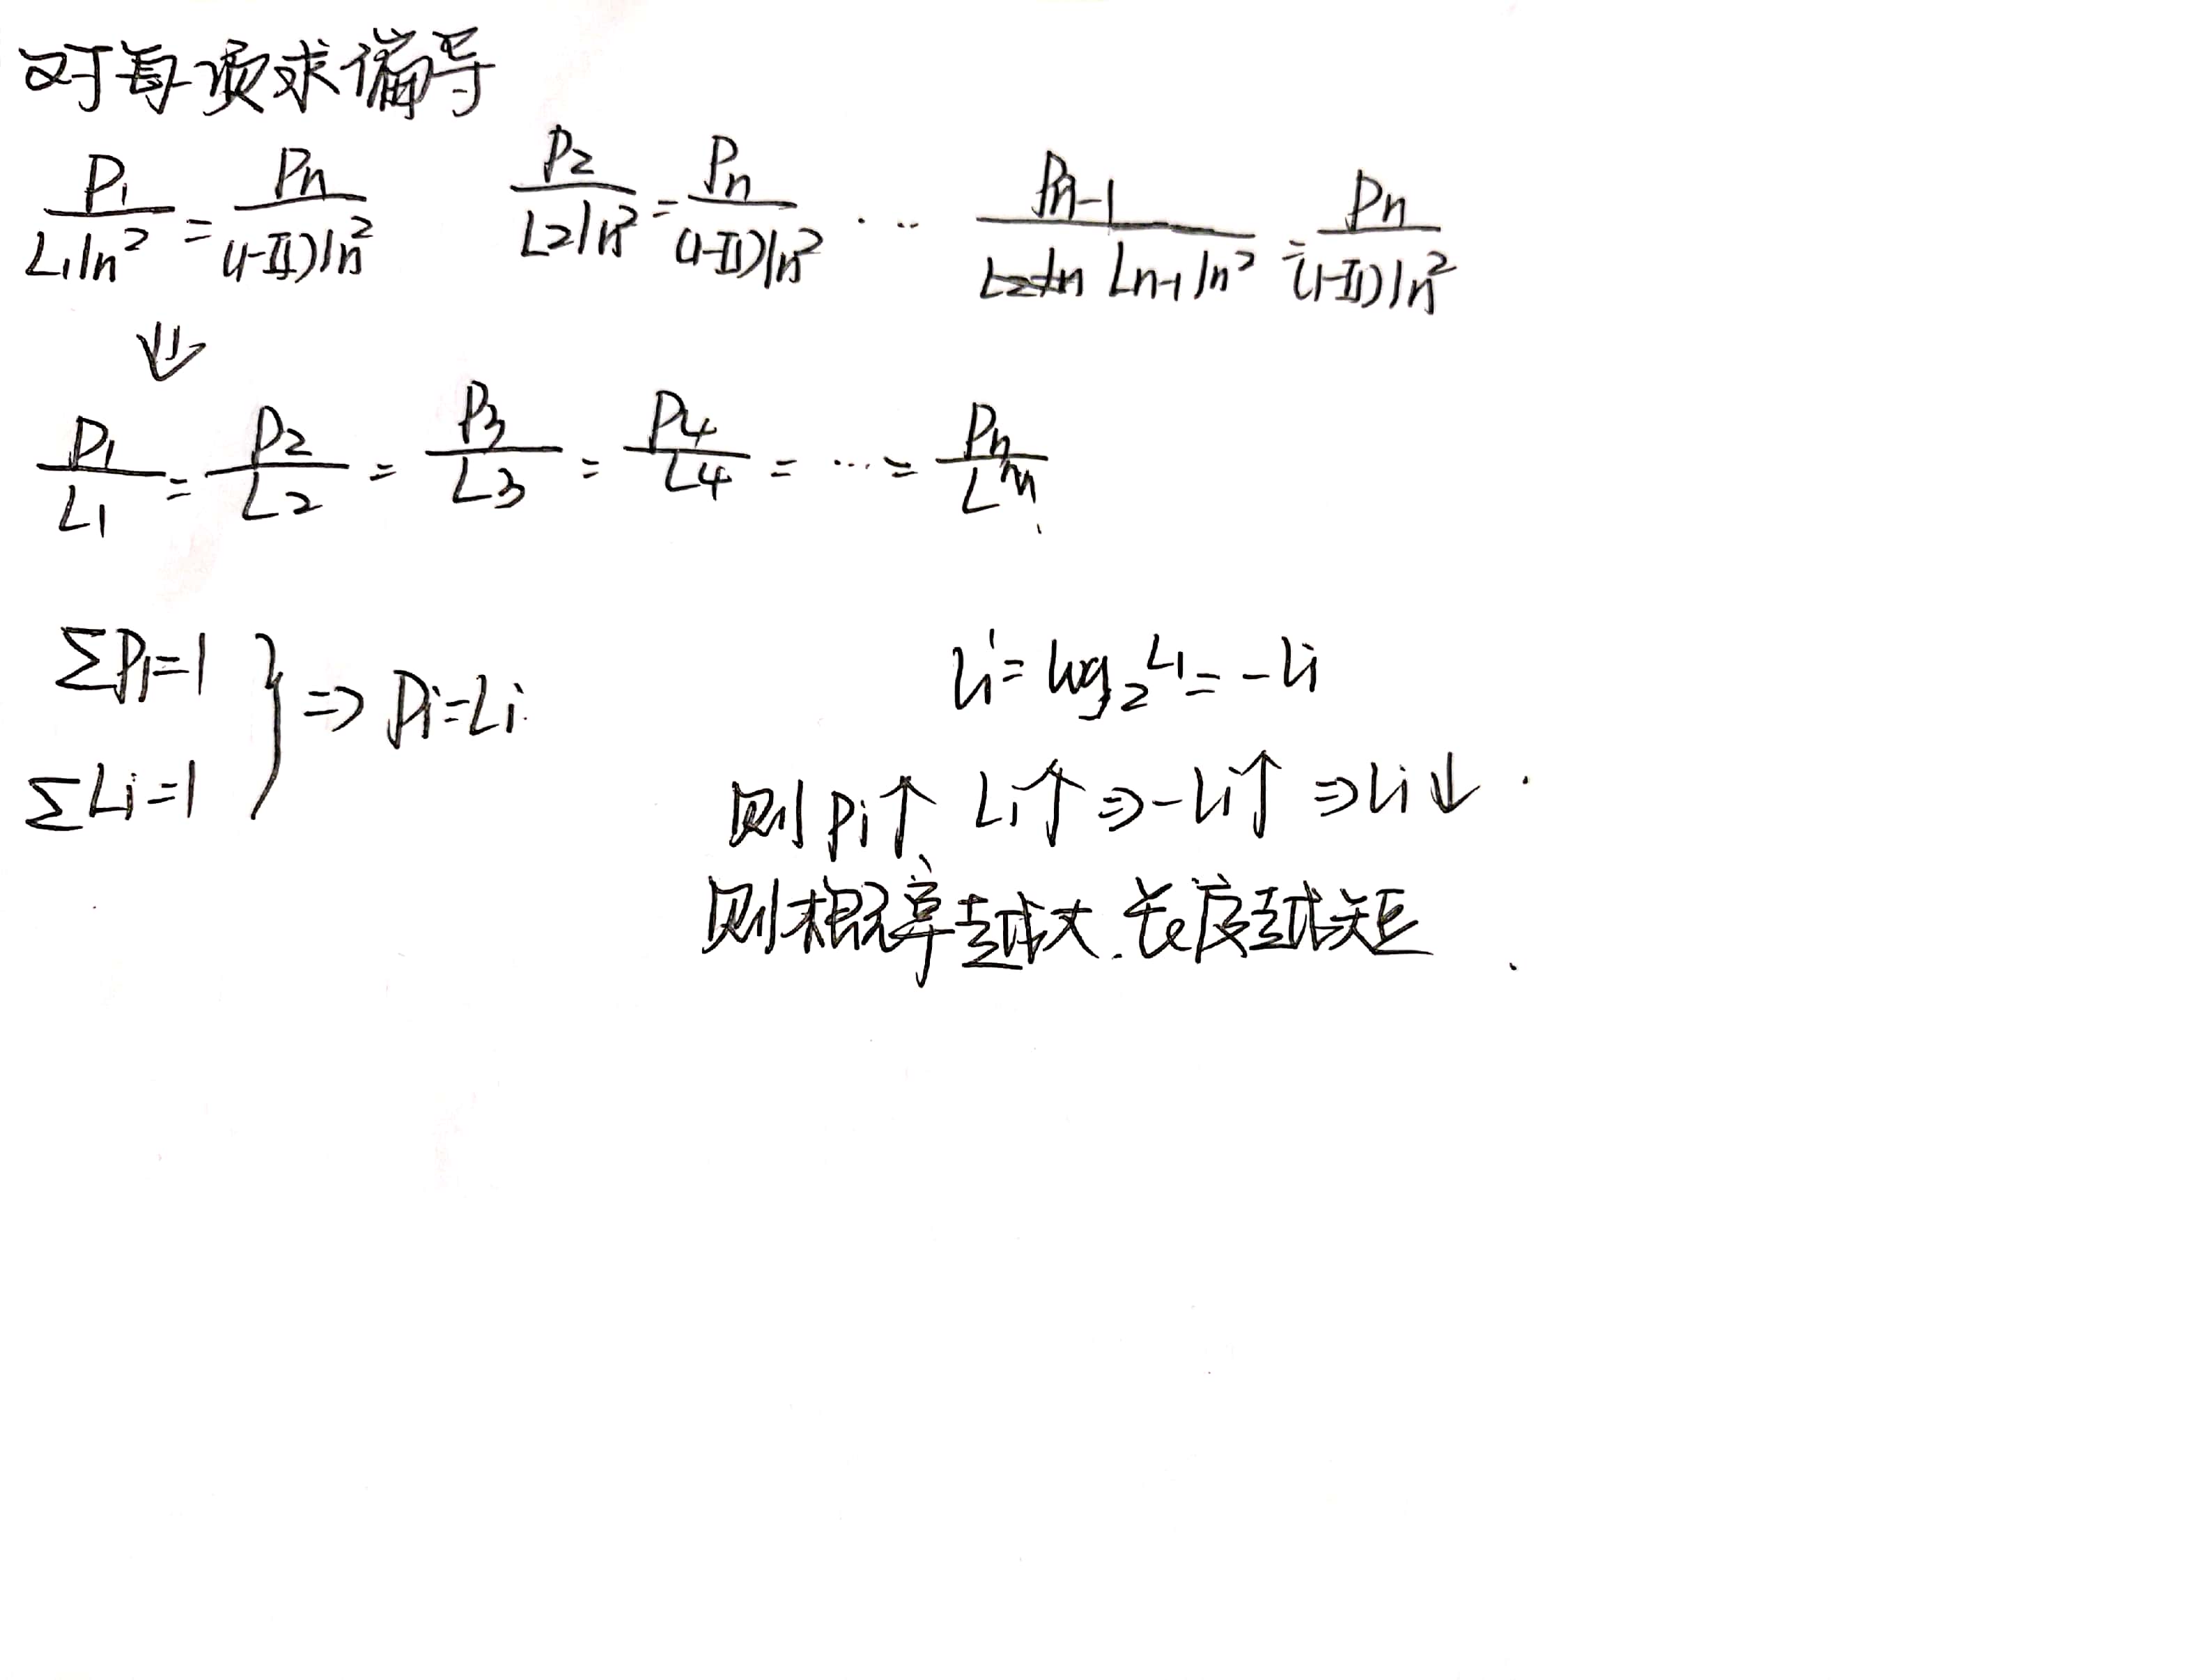 对每项求偏导
P1/(L1 ln2) = Pn/((1-II)ln2)   P2/(L2 ln2) = Pn/((1-II)ln2) ... Pn-1/(Ln-1 ln2) = Pn/((1-II)ln2)
⇓
P1/L1 = P2/L2 = P3/L3 = P4/L4 = ... = Pn/Ln
ΣPi=1
ΣLi=1 } ⇒ Pi=Li
li' = log2 Li = -li
则Pi↑ Li↑ ⇒ -li↑ ⇒ li↓.
则概率越大.长度越短